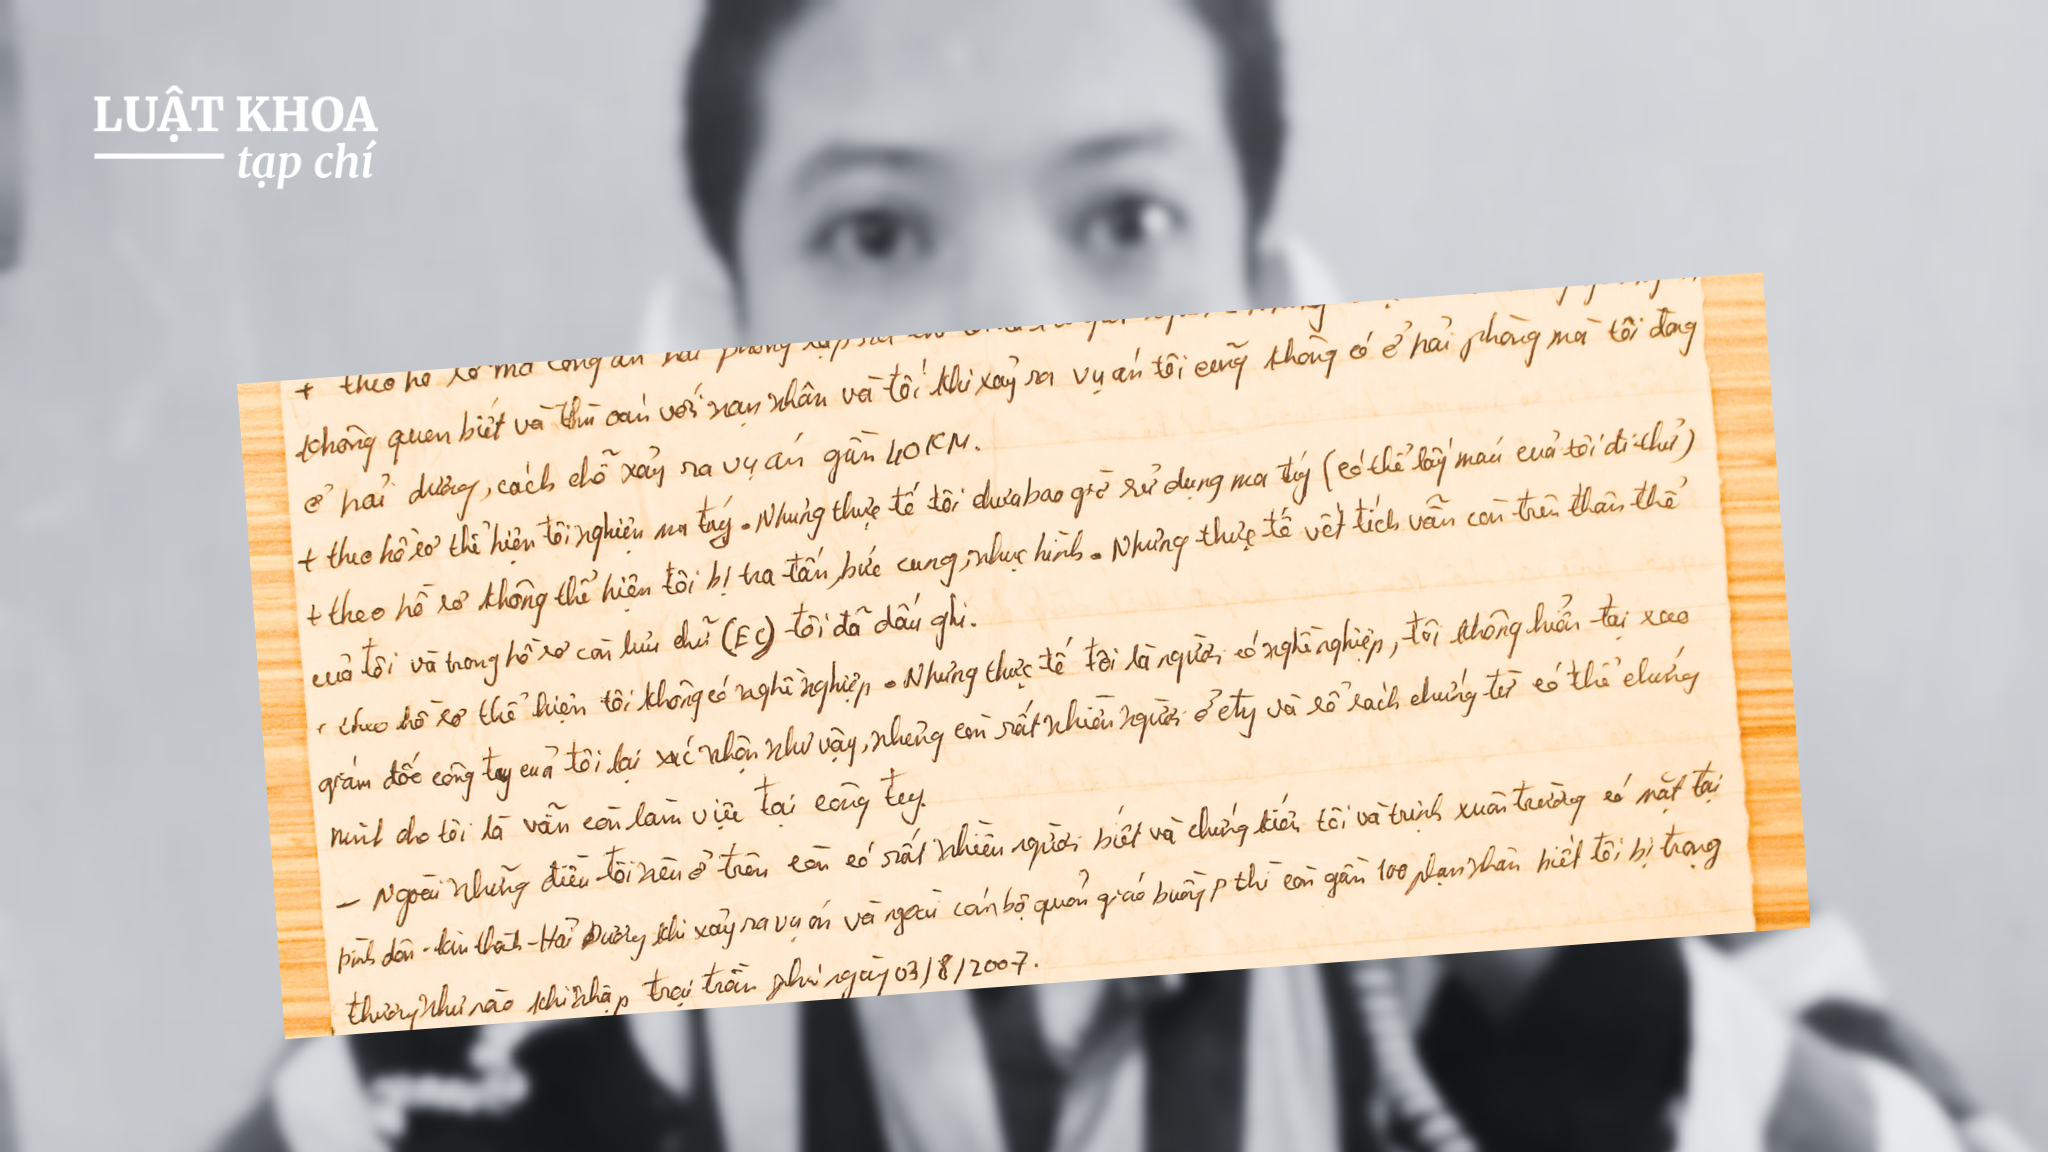 LUẬT KHOA
tạp chí
+ theo hồ sơ mà công an hải phòng lập
không quen biết và thù oán với nạn nhân và tôi khi xảy ra vụ án tôi cũng không có ở hải phòng mà tôi đang
ở hải dương, cách chỗ xảy ra vụ án gần 40KM.
+ theo hồ sơ thể hiện tôi nghiện ma túy. Nhưng thực tế tôi chưa bao giờ sử dụng ma túy (có thể lấy máu của tôi đi thử)
+ theo hồ sơ không thể hiện tôi bị tra tấn, bức cung, nhục hình. Nhưng thực tế vết tích vẫn còn trên thân thể
của tôi và trong hồ sơ còn lưu chữ (EC) tôi đã dấu ghi.
+ theo hồ sơ thể hiện tôi không có nghề nghiệp. Nhưng thực tế tôi là người có nghề nghiệp, tôi không hiểu tại sao
giám đốc công ty của tôi lại xác nhận như vậy, nhưng còn rất nhiều người ở cty và sổ sách chứng từ có thể chứng
minh cho tôi là vẫn còn làm việc tại công ty.
– Ngoài những điều tôi nêu ở trên còn có rất nhiều người biết và chứng kiến tôi và trịnh xuân trường có mặt tại
bình dân - kim thành - Hải Dương khi xảy ra vụ án và ngoài cán bộ quản giáo buồng p thì còn gần 100 phạm nhân biết tôi bị trọng
thương như nào khi nhập trại trần phú ngày 03/8/2007.